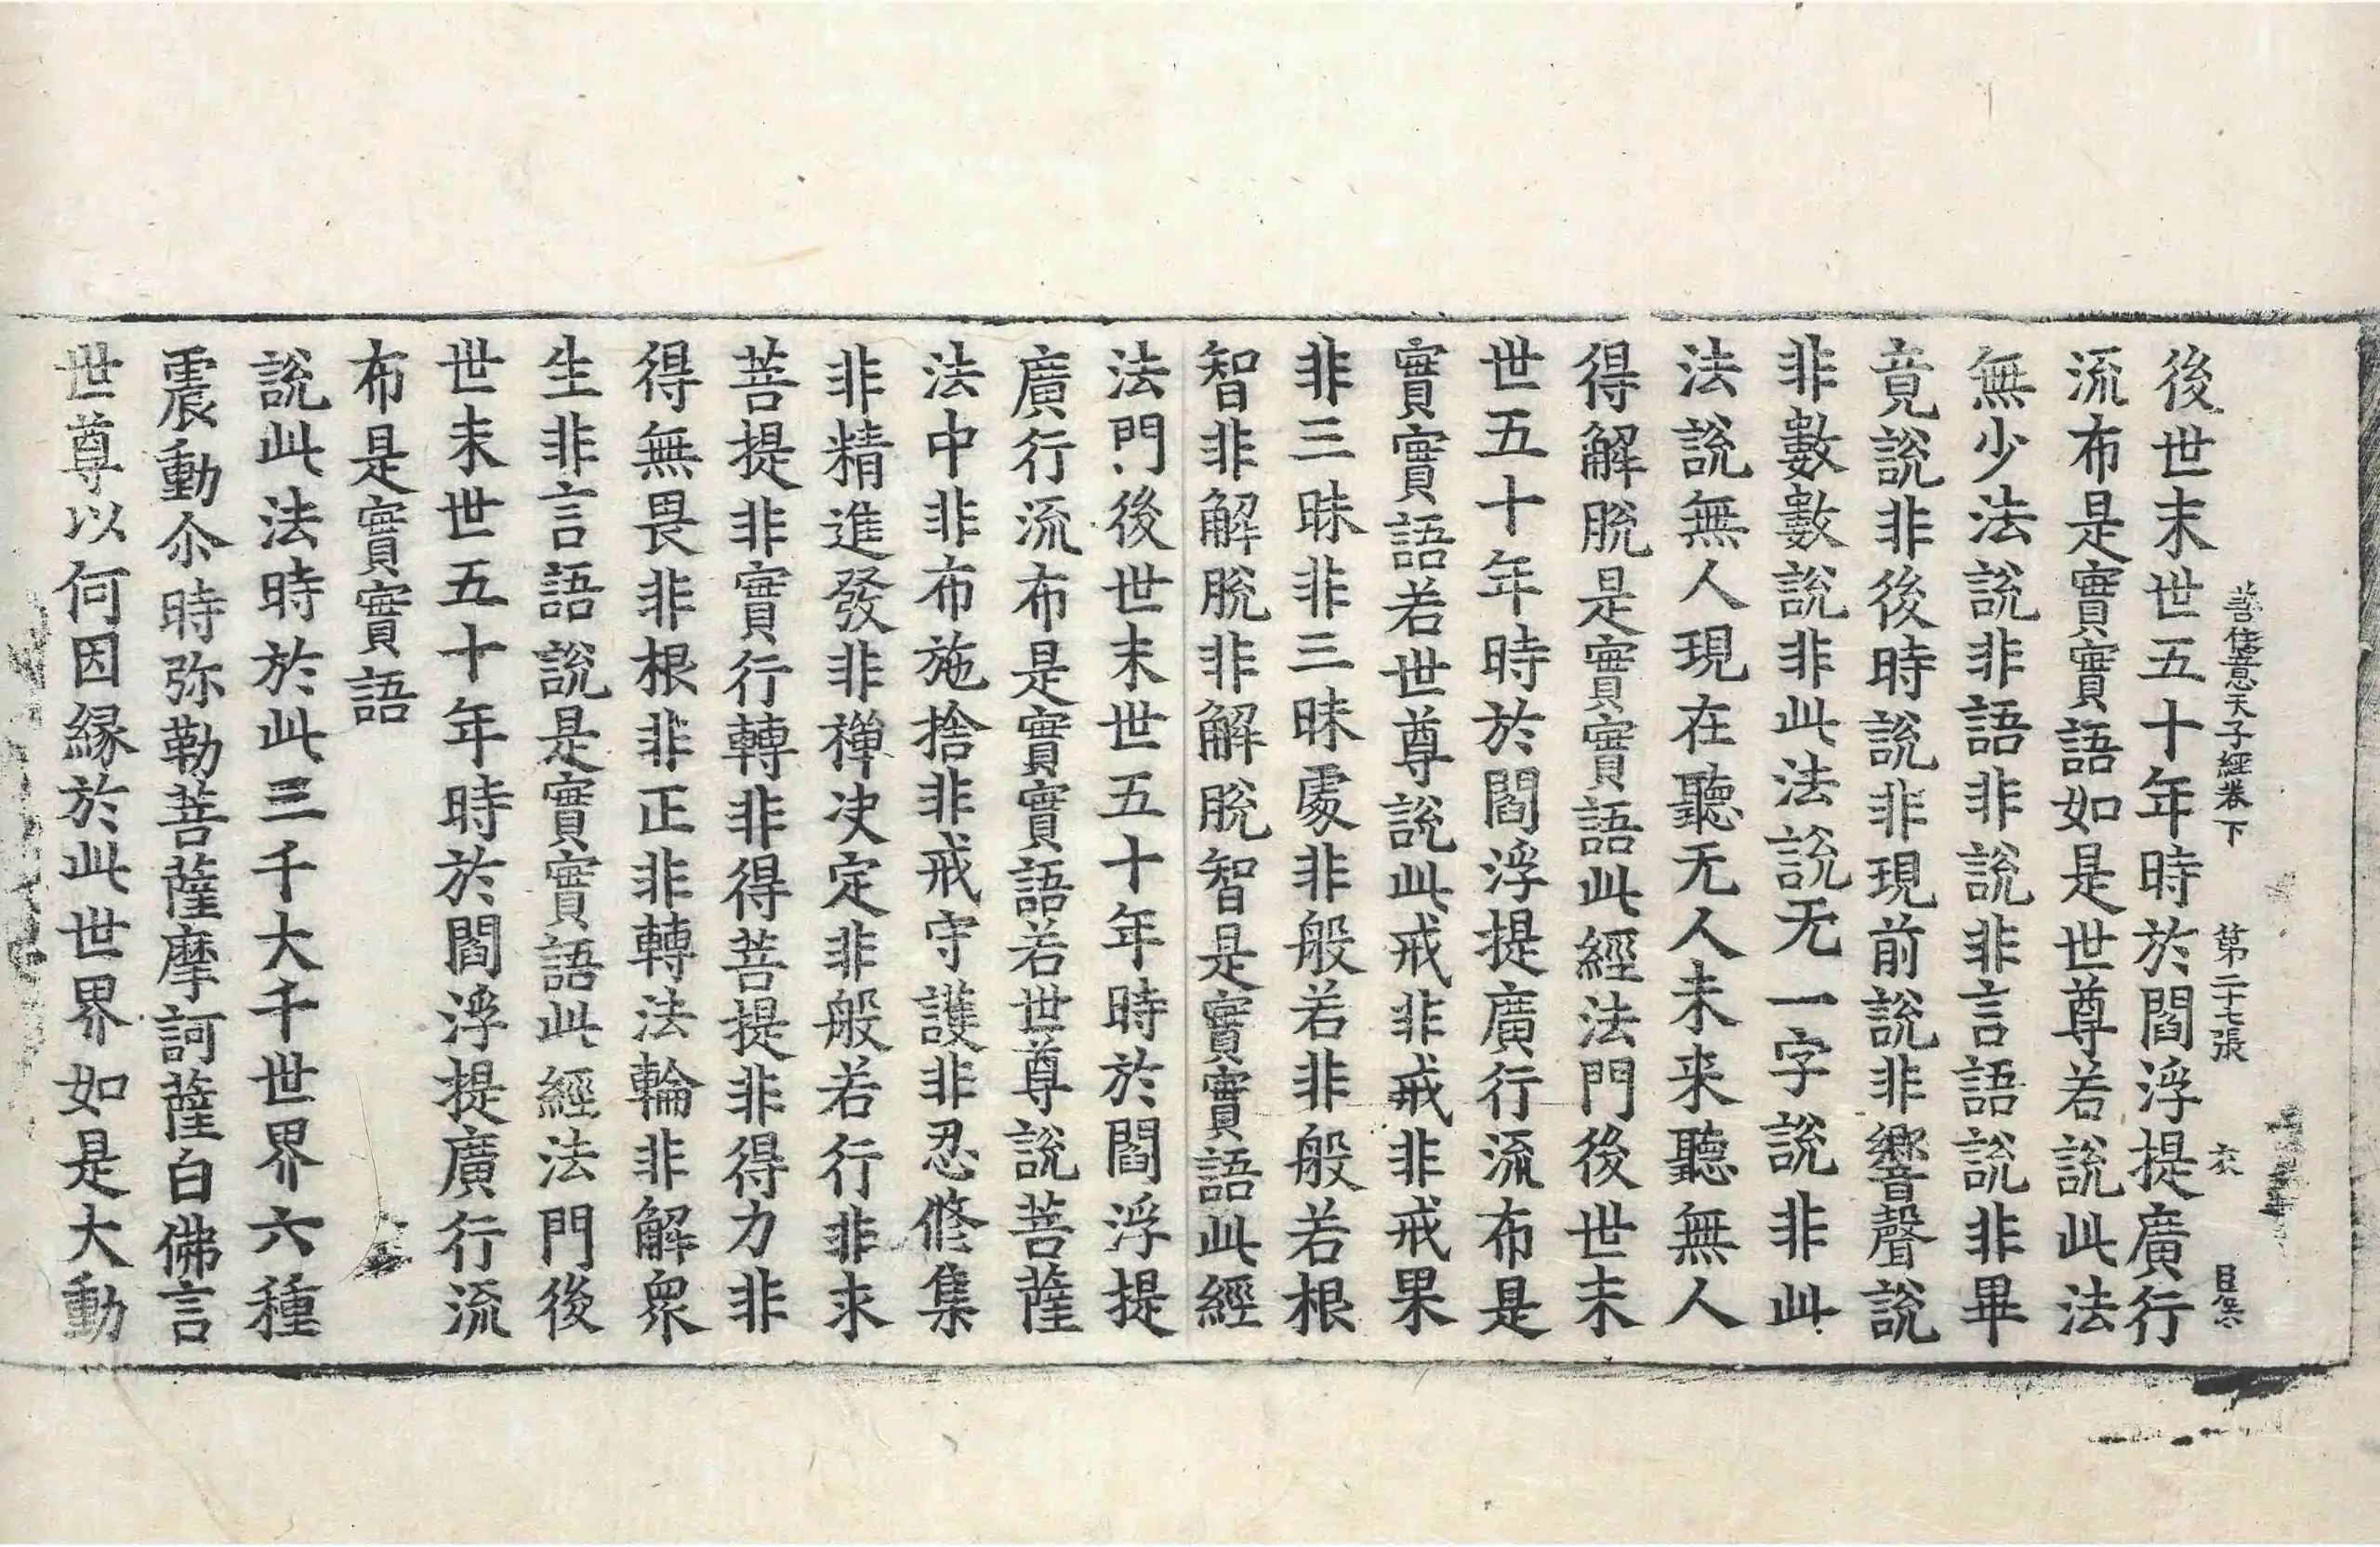 善住意天子經卷下 第二十七張 衣
後世末世五十年時於閻浮提廣行
流布是實實語如是世尊若說此法
無少法說非語非說非言語說非畢
竟說非後時說非現前說非響聲說
非數數說非此法說无一字說非此
法說無人現在聽无人未来聽無人
得解脫是實實語此經法門後世末
世五十年時於閻浮提廣行流布是
實實語若世尊說此戒非戒非戒果
非三昧非三昧處非般若非般若根
智非解脫非解脫智是實實語此經
法門後世末世五十年時於閻浮提
廣行流布是實實語若世尊說菩薩
法中非布施捨非戒守護非忍修集
非精進發非禪决定非般若行非求
菩提非實行轉非得菩提非得力非
得無畏非根非正非轉法輪非解衆
生非言語說是實實語此經法門後
世末世五十年時於閻浮提廣行流
布是實實語
說此法時於此三千大千世界六種
震動尒時弥勒菩薩摩訶薩白佛言
世尊以何因縁於此世界如是大動